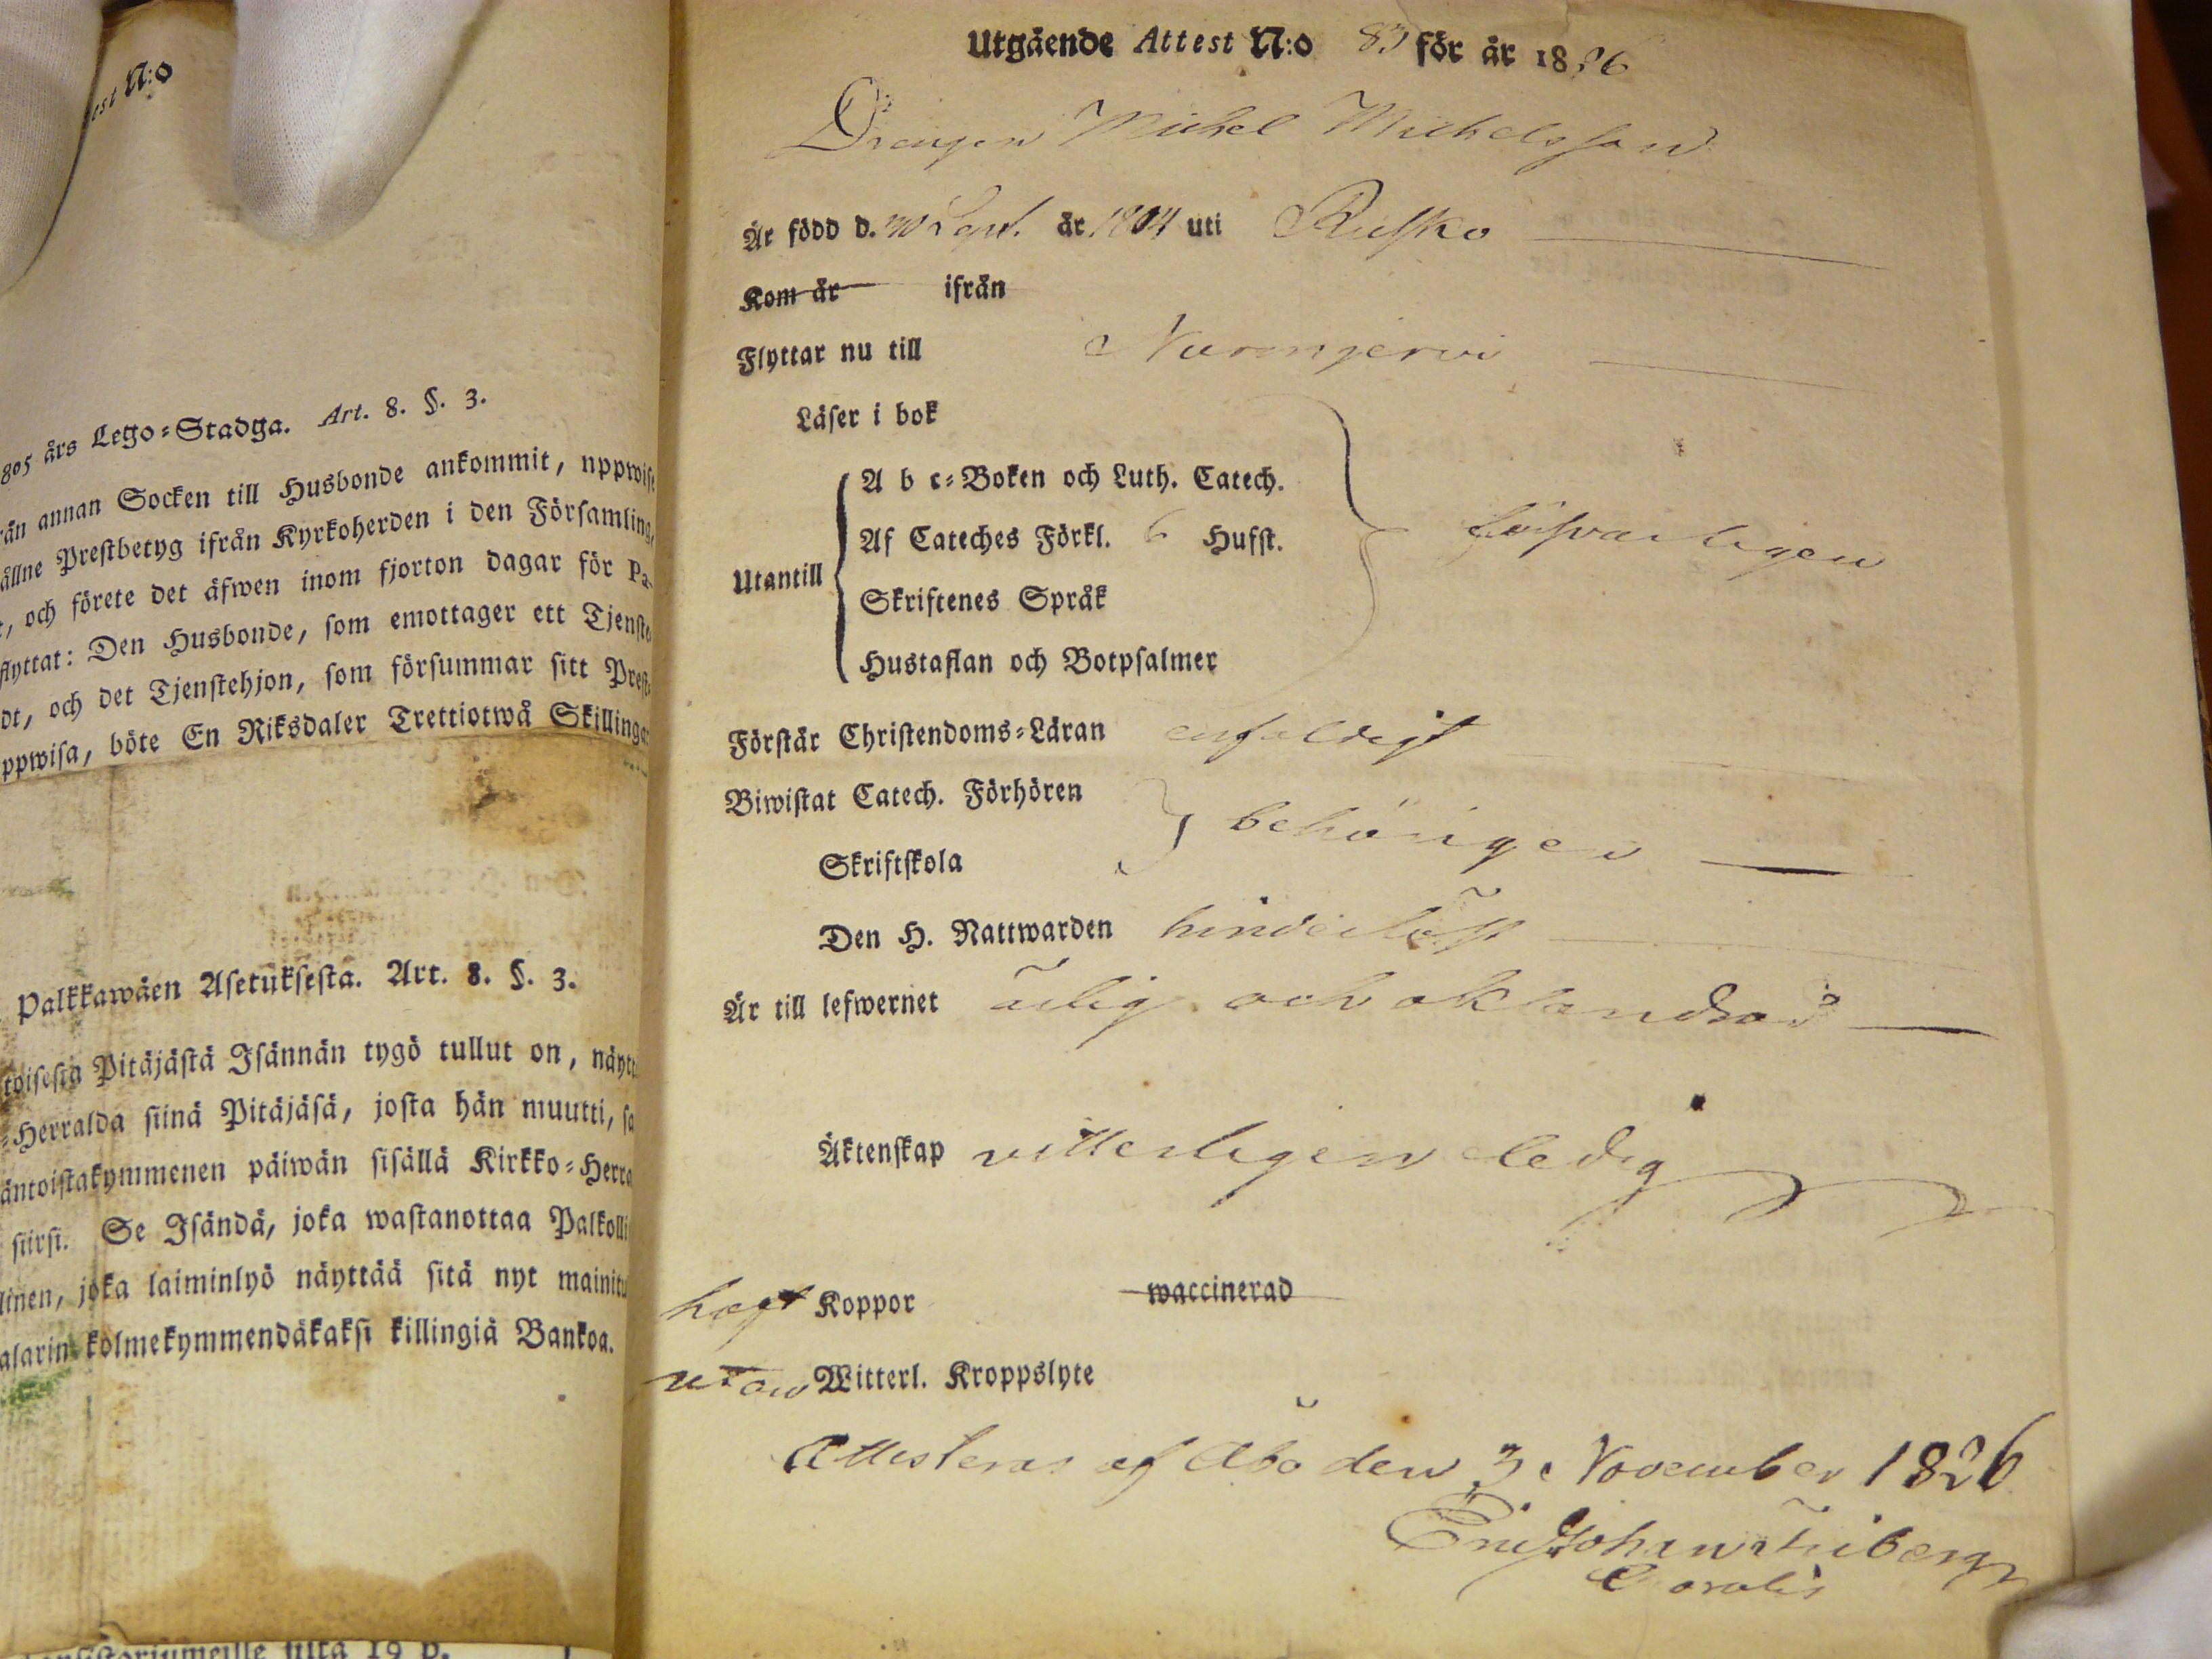 est N:o
805 års Lego-Stadga. Art. 8. §. 3.
rån annan Socken till Husbonde ankommit, uppwise
ållne Prestbetyg ifrån Kyrkoherden i den Församling,
, och förete det äfwen inom fjorton dagar för Pa-
flyttat: Den Husbonde, som emottager ett Tjenste
dt, och det Tjenstehjon, som försummar sitt Prest-
ppwisa, böte En Riksdaler Trettiotwå Skillingar
Palkkawäen Asetuksesta. Art. 8. §. 3.
toisesta Pitäjästä Isännän tygö tullut on, näyt
-Herralda siinä Pitäjäsä, josta hän muutti, sa
äntoistakymmenen päiwän sisällä Kirkko-Herra
siirsi. Se Isändä, joka wastanottaa Palkolli
linen, joka laiminlyö näyttää sitä nyt mainitu
alarin kolmekymmendäkaksi killingiä Bankoa.
19 p.
Utgående Attest N:o 83 för år 1826
Drengen Michel Michelsson
Är född d. 30 Sept. år 1804 uti Rusko
Kom år ifrån
Flyttar nu till Nurmijervi
Läser i bok
Utantill
A b c-Boken och Luth. Catech.
Af Cateches Förkl. 6 Hufst.
Skriftenes Språk
Hustaflan och Botpsalmer
försvarligen
Förstår Christendoms-Läran enfaldigt
Biwistat Catech. Förhören
Skriftskola
behörigen
Den H. Nattwarden hinderlöst
Är till lefwernet ärlig och oklandrad
Äktenskap vitterligen ledig
haft Koppor waccinerad
utan Witterl. Kroppslyte
Attesteras af Åbo den 3 November 1826
Johan Friberg